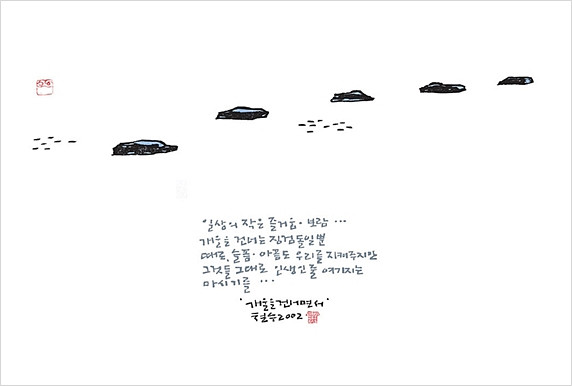 일상의 작은 즐거움 · 보람 ...
개울을 건너는 징검돌일뿐
때로, 슬픔 · 아픔도 우리를 지켜주지만
그것들 그대로 인생인줄 여기지는
마시기를 ...
'개울을 건너면서'
철수 2002 ·